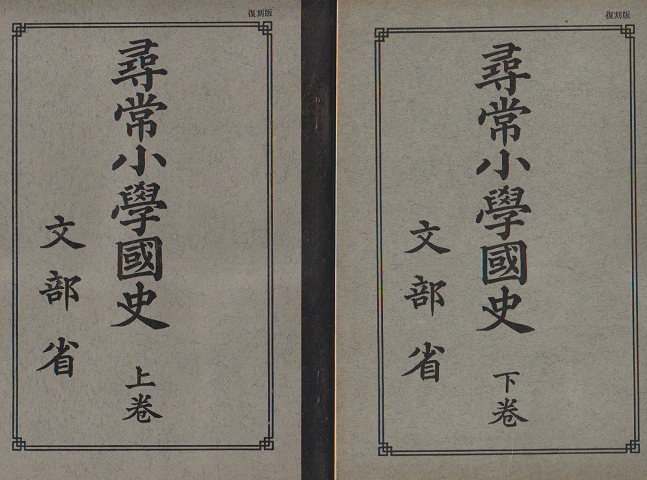 復刻版
尋常小學國史
上卷
文部省
復刻版
尋常小學國史
下卷
文部省